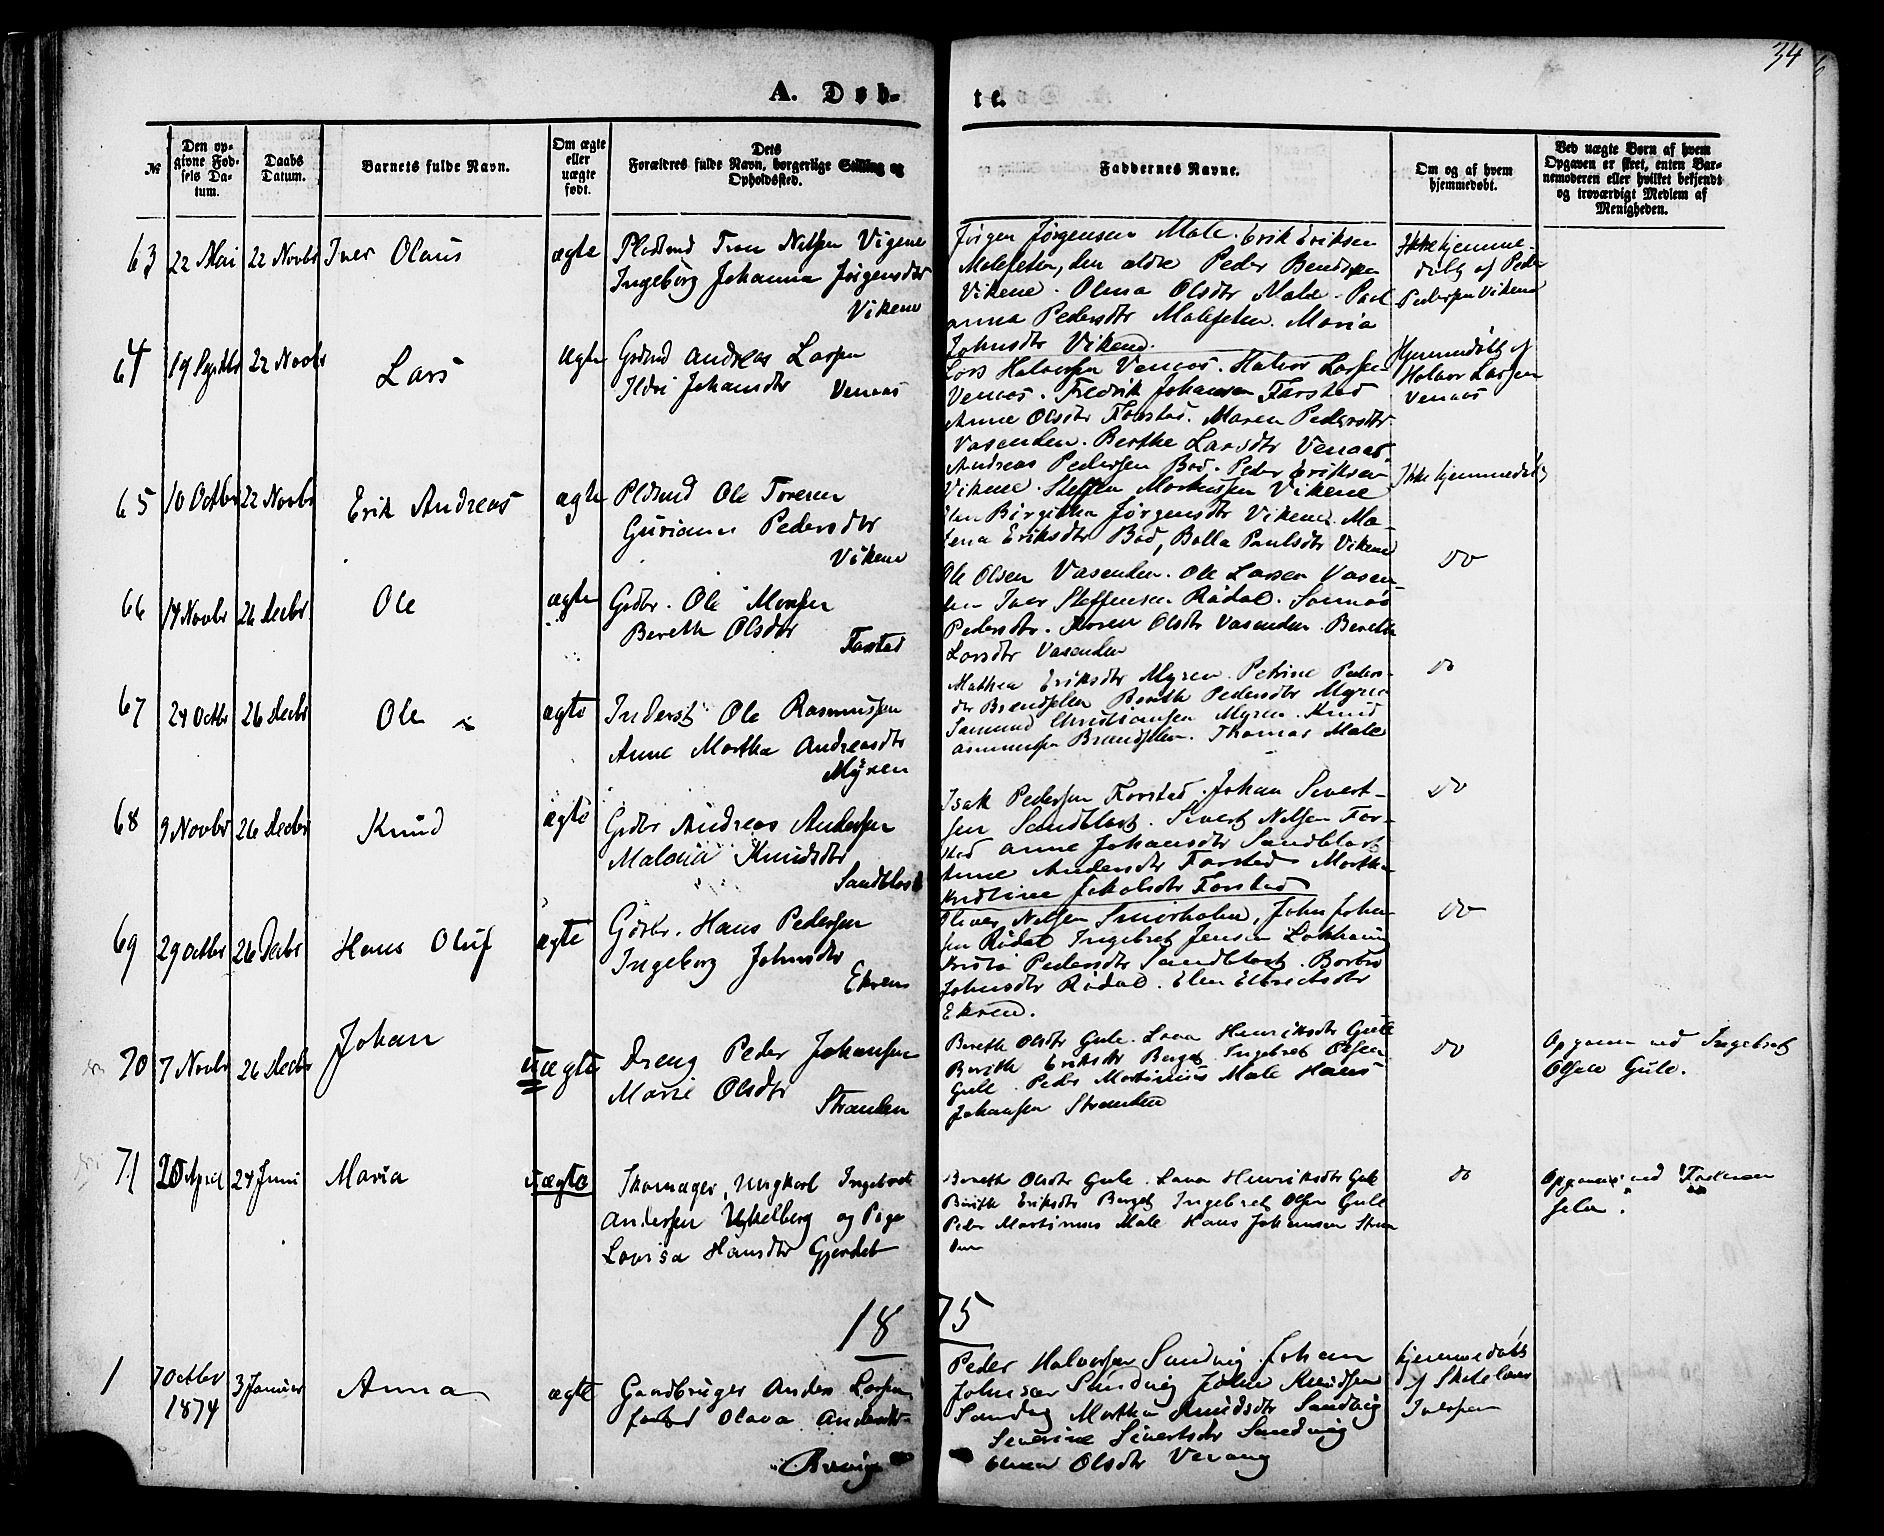 34
A. Døb-
te.
№
Den op-
givne Fød-
sels Da-
tum.
Daabs
Datum.
Barnets fulde Navn.
Om ægte
eller
uægte
født.
Dets
Forældres fulde Navn, borgerlige Stilling og
Opholdssted.
Faddernes Navne.
Om og af hvem
hjemmedøbt.
Ved uægte Børn af hvem
Opgaven er skeet, enten Bar-
nemoderen eller hvilket bekjendt
og troværdigt Medlem af
Menigheden.
63 22 Mai 22 Novbr Iver Olaus ægte
Nilsen Vigene
Ingeborg Johanna Jørgensdtr
Vikene
Jørgen Jørgensen Male. Erik Eriksen
Malefeten, den ældre Peder
Vikene. Olina Olsdtr Male
Pedersdtr Malefeten. Maria
Johnsdtr Vikene.
hjemme-
døbt af Peder
Pedersen Vikene
64 19 22 Novbr Lars ægte
Grdmd Andreas Larsen
Ildri Johansdtr Venaas
Lars Halvorsen Venaas. Halvor Larsen
Venaas. Fredrik Johansen Farstad
Anne Olsdtr Farstad. Maren Pedersdtr
Vasenden. Berthe Larsdtr Venaas.
Hjemmedøbt af
Halvor Larsen
Venaas
65 10 Octbr 22 Novbr Erik Andreas ægte
Pldsmd Ole Toresen
Gurianna Pedersdtr
Vikene
Andreas Pedersen Bod. Peder Eriksen
Vikene. Steffen Vikene
Birgitha Jørgensdtr Vikene. Ma-
lena Eriksdtr Bod, Bolla Paulsdtr Vikene
Ikke hjemmedøbt
66 14 Novbr 26 Decbr Ole ægte
Grdbr. Ole Monsen
Bereth Olsdtr
Farstad
Ole Olsen Vasenden. Ole Larsen Vasen-
den Iver Steffensen Rødal.
Pedersdtr. Karen Olsdtr Vasenden. Bereth
Larsdtr Vasenden
do
67 24 Octbr 26 Decbr Ole ægte
Inderst Ole Rasmussen
Anne Martha Andreasdtr
Myren
Mathea Eriksdtr Myren. Petrine Peders-
dtr Bereth Pedersdtr Myren
Christiansen Myren. Knud
Thomas Male
do
68 9 Novbr 26 Decbr Knud ægte
Grdbr Andreas Andersen
Knudsdtr
Sandblost
Isak Pedersen Farstad. Johan Sivert-
sen Sandblost. Sivert Nilsen Far-
stad Anne Johansdtr Sandblost
Anne Andersdtr Farstad Martha
Jakobsdtr Farstad
do
69 29 Octbr 26 Decbr Hans Oluf ægte
Grdbr. Hans Pedersen
Ingeborg Johnsdtr
Ekren
Oliver Nilsen John Johan-
sen Rødal Ingebret Jensen
Pedersdtr Sandblost.
Johnsdtr Rødal. Elen
Ekren.
do
70 7 Novbr 26 Decbr Johan uægte
Dreng Peder Johansen
Marie Olsdtr
Stranden
Bereth Olsdtr Gule. Lava Henriksdtr Gule
Bereth Eriksdtr Berget Ingebret Olsen
Gule. Peder Martinius Male Hans
Johansen Stranden
do
Opgaven ved Ingebret
Olsen Gule.
71 20 April 24 Juni Maria uægte
Skomager, Ungkarl Ingebret
Andersen og Pige
Lovisa Hansdtr Gjerdet
Bereth Olsdtr Gule. Lava Henriksdtr Gule
Bereth Eriksdtr Berget Ingebret Olsen Gule
Peder Martinius Male Hans Johansen Stran
den
do
Opgaven ved Faderen
selv.
1875
1 7 Octbr
1874
3 Januar Anna ægte
Gaardbruger Anders Larsen
Olava Andersdtr
Peder Halvorsen Sandvig Johan
Johnsen Sandvig John Knudsen
Sandvig Martha Knudsdtr Sandvig
Severine Sivertsdtr Sandvig
Olsdtr
hjemmedøbt
af Skolelærer
Iversen